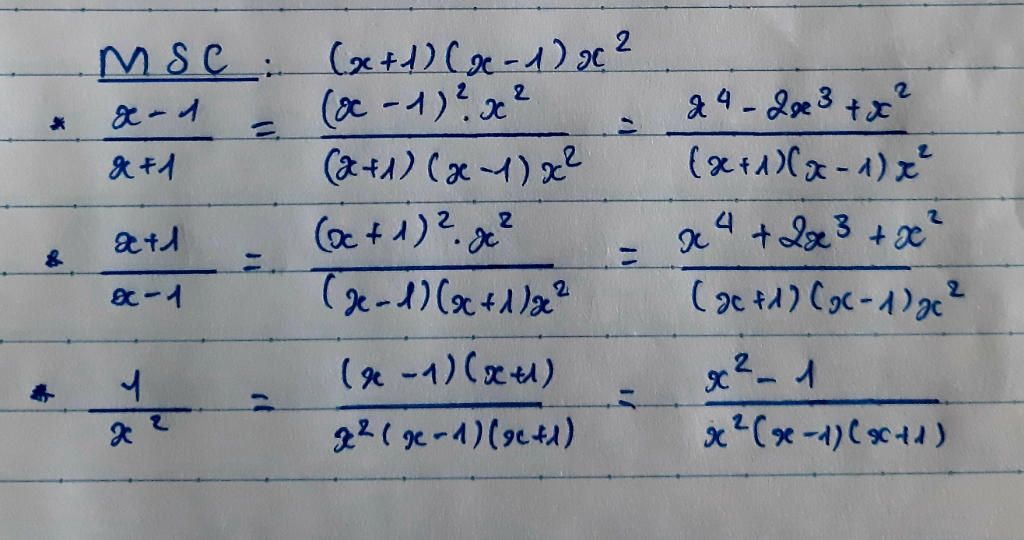 MSC : (x+1)(x-1)x²
* (x-1)/(x+1) = ((x-1)².x²)/((x+1)(x-1)x²) = (x⁴-2x³+x²)/((x+1)(x-1)x²)
* (x+1)/(x-1) = ((x+1)².x²)/((x-1)(x+1)x²) = (x⁴+2x³+x²)/((x+1)(x-1)x²)
* 1/x² = ((x-1)(x+1))/(x²(x-1)(x+1)) = (x²-1)/(x²(x-1)(x+1))